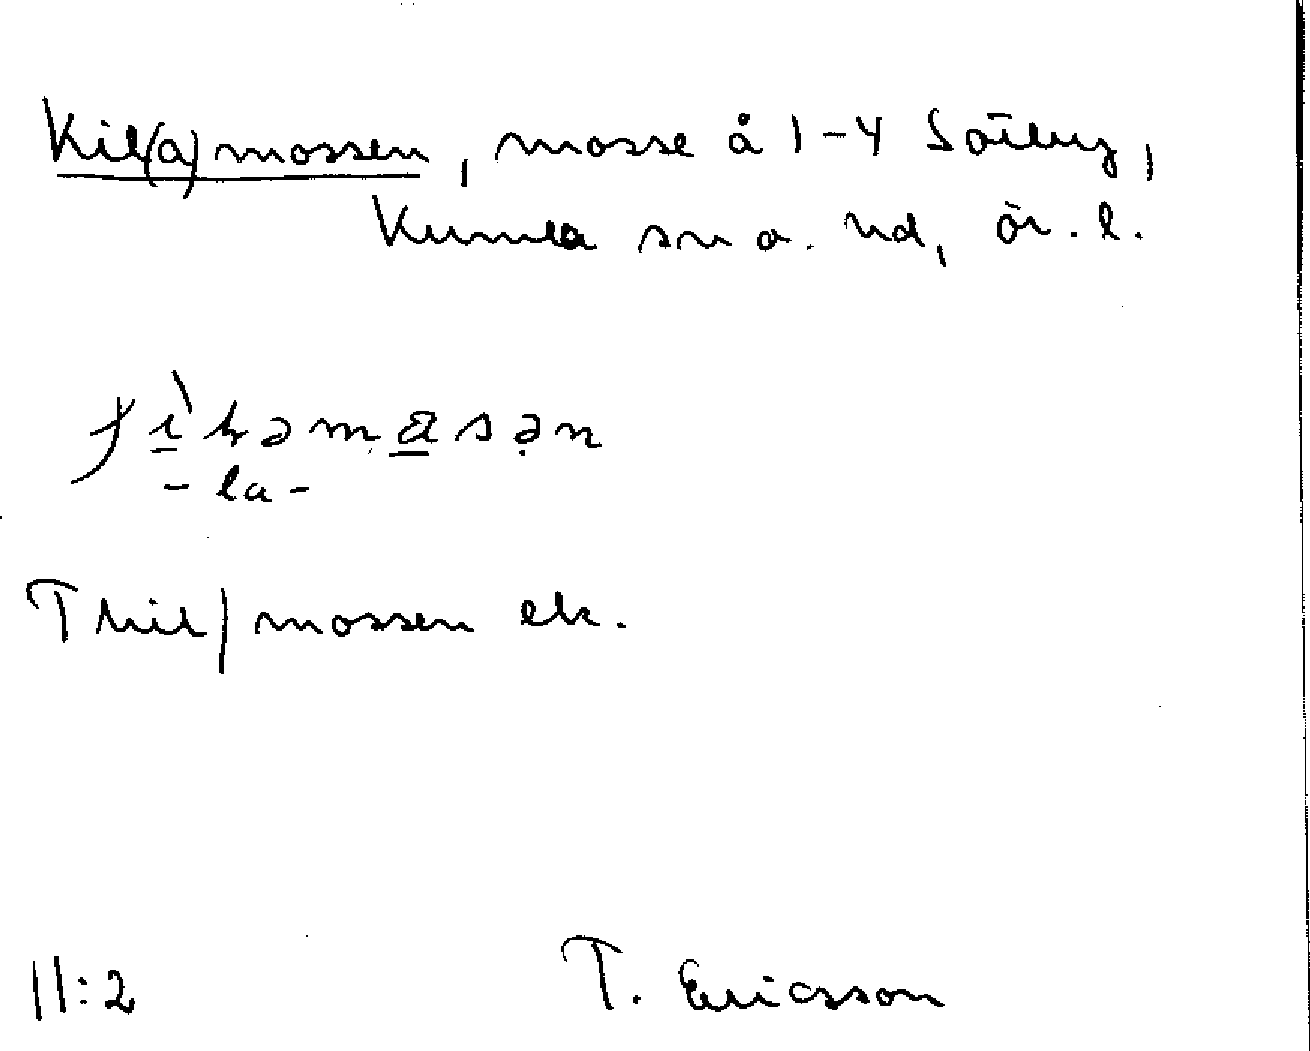 Kil(a)mossen, mosse å 1-4 Sälby,
Kumla sn o. hd, Ör. l.
-la-
T Kil/mossen ek.
11:2 T. Ericsson